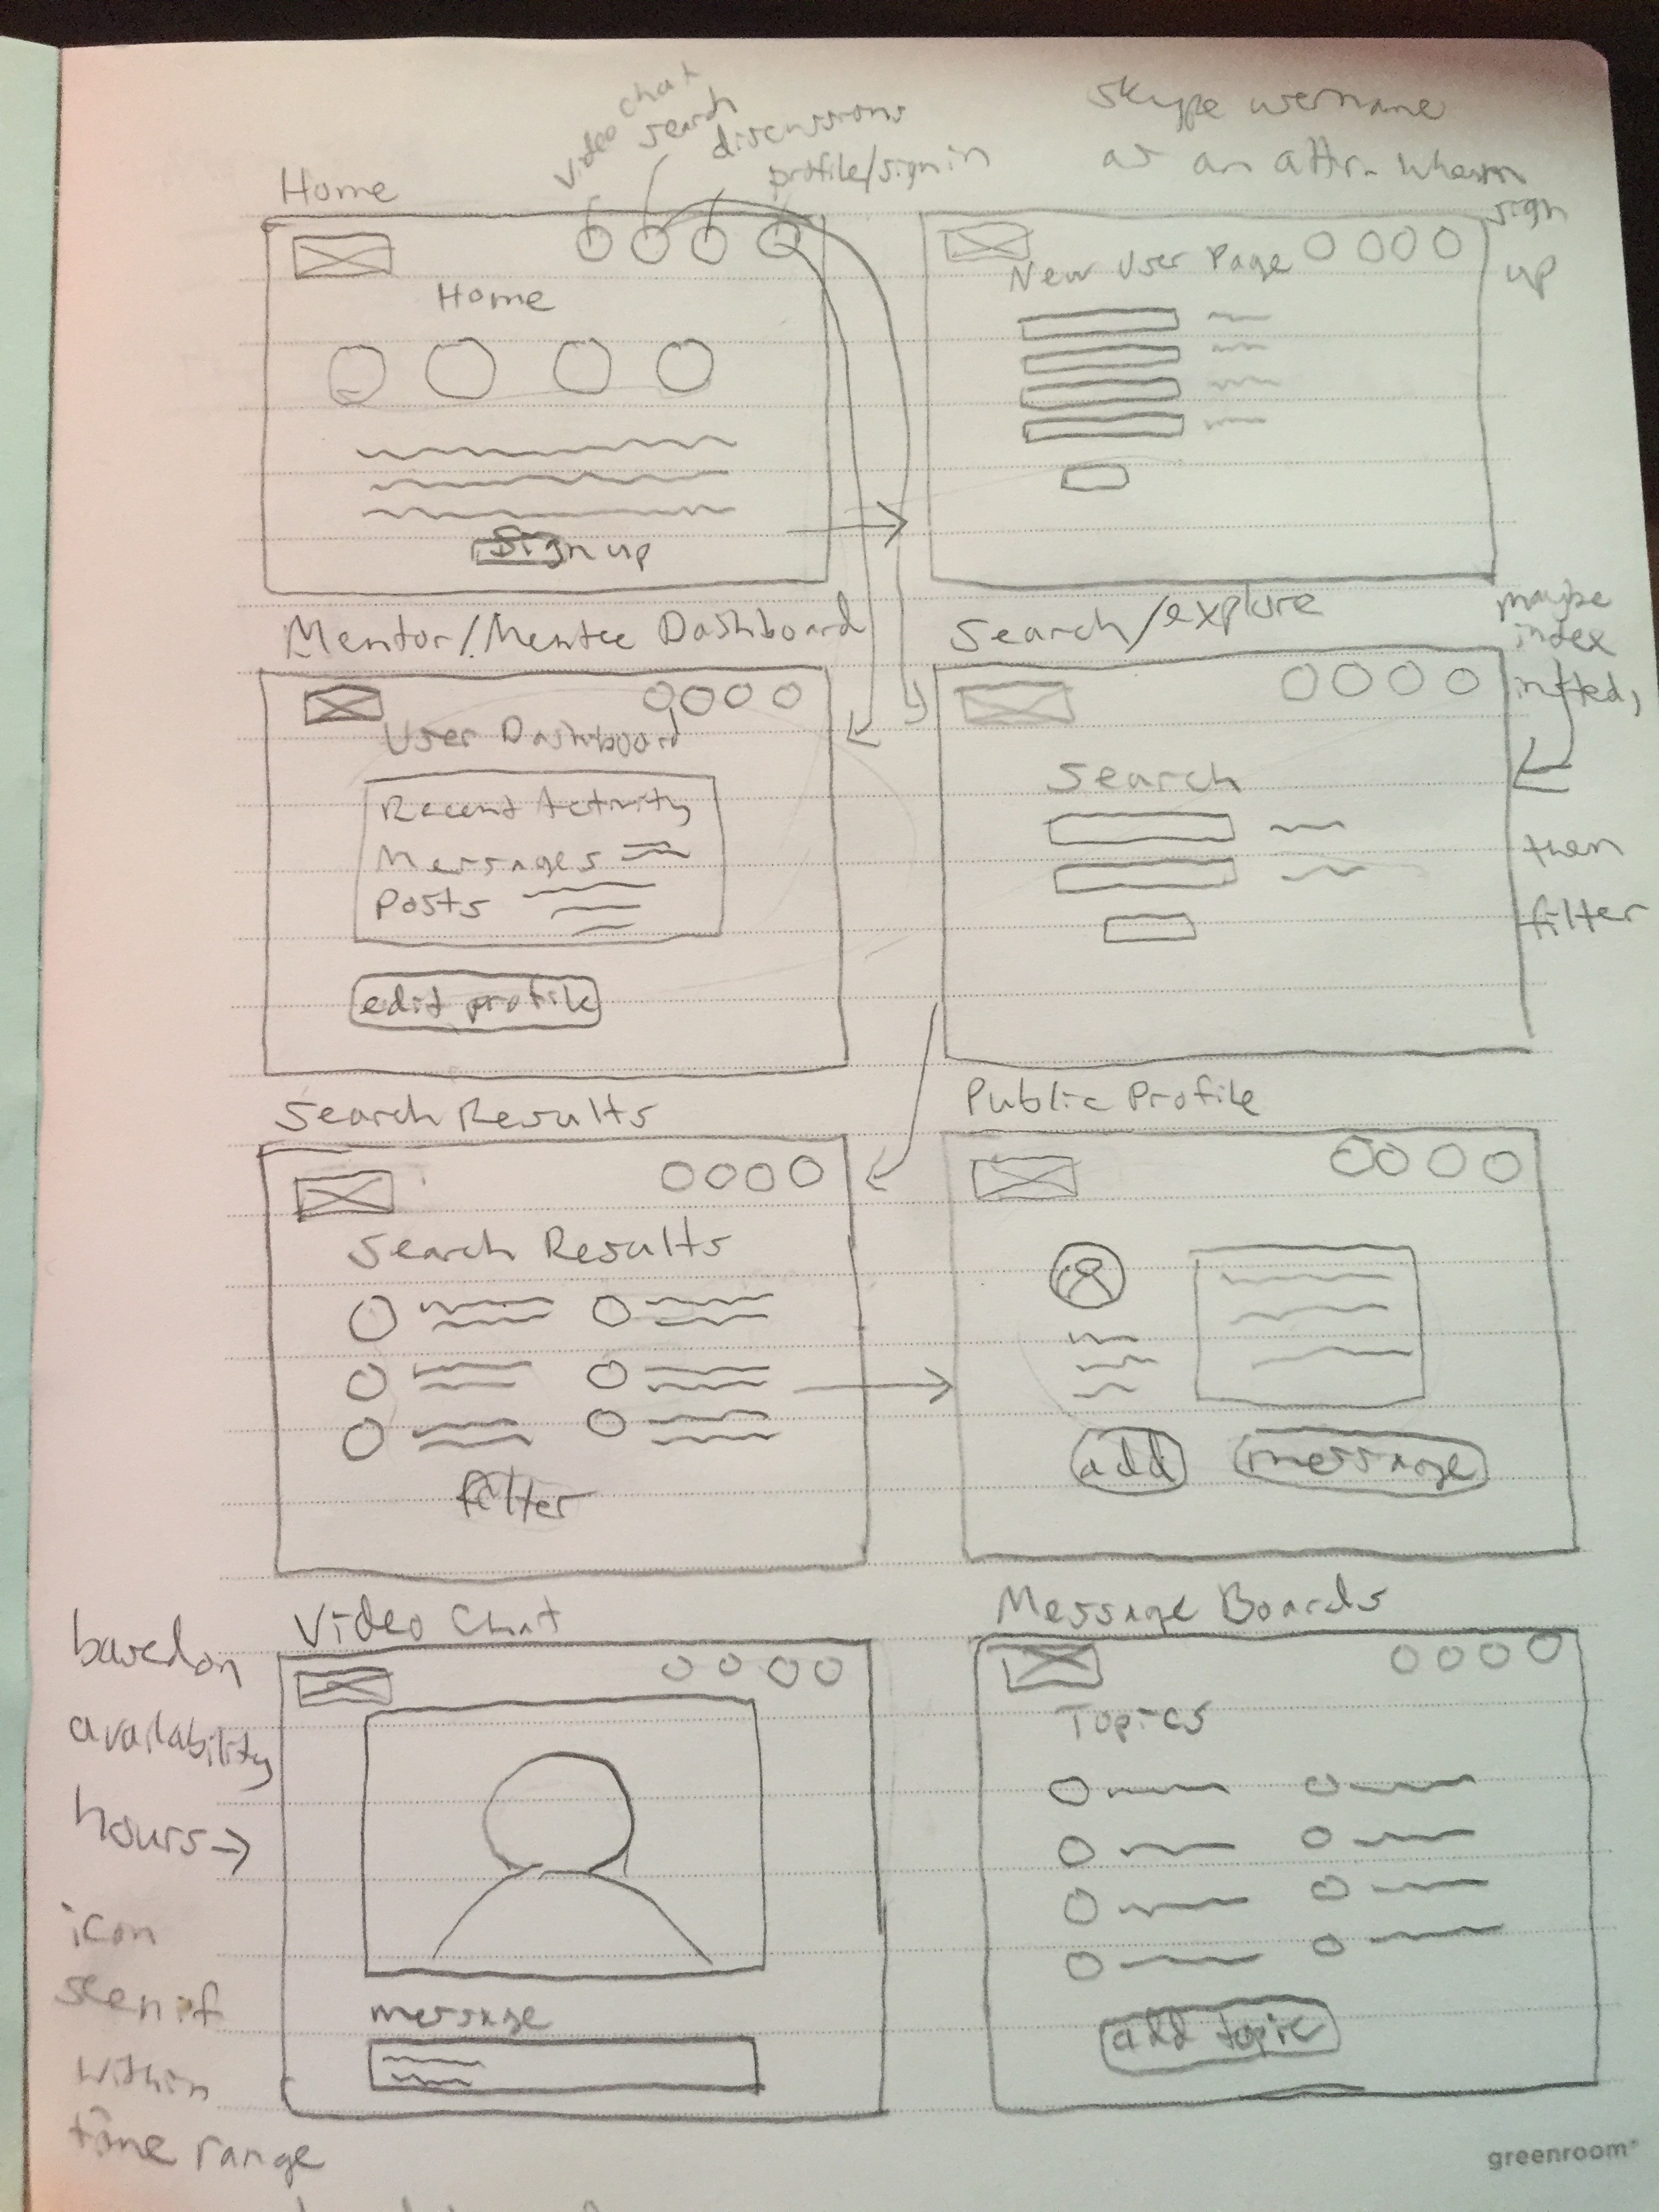 video chat
search
discussions
profile/sign in
skype username
as an attr. when
sign
up
Home
Home
Sign up
New User Page
Mentor/Mentee Dashboard
User Dashboard
Recent Activity
Messages
Posts
edit profile
Search/explore
Search
maybe
index
then
filter
Search Results
Search Results
filter
Public Profile
add
message
Video Chat
message
based on
availability
hours →
icon
seen if
within
time range
Message Boards
Topics
add topic
greenroom